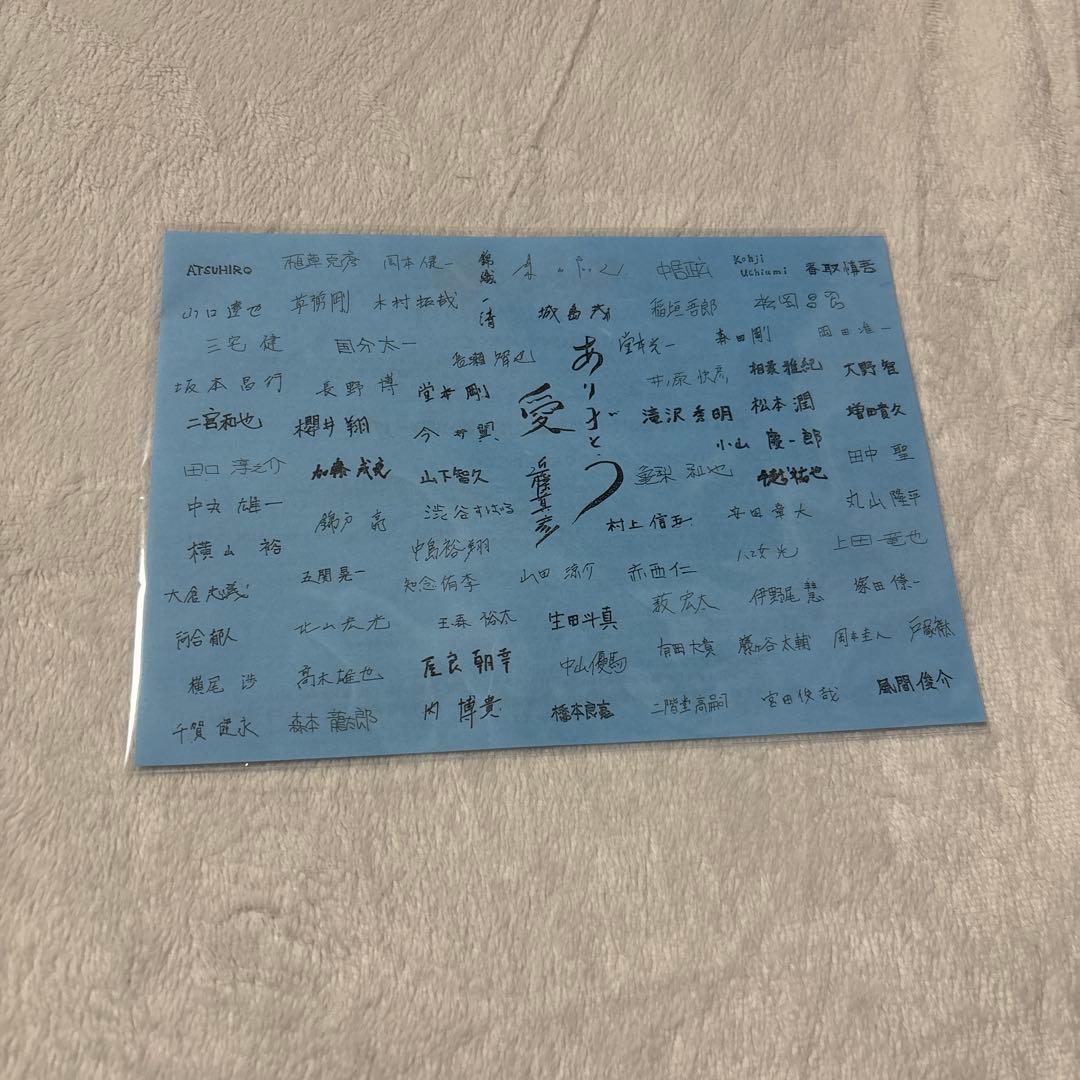 ATSUHIRO
植草克彦
岡本健一
錦織一清
中居正広
Kohji Uchiumi
香取慎吾
山口達也
草彅剛
木村拓哉
城島茂
稲垣吾郎
松岡昌宏
三宅 健
国分太一
長瀬智也
堂本光一
森田剛
岡田准一
坂本昌行
長野 博
堂本剛
ありがとう
愛
近藤真彦
井ノ原快彦
相葉雅紀
大野智
二宮和也
櫻井翔
今井翼
滝沢秀明
松本潤
増田貴久
小山慶一郎
田口淳之介
加藤成亮
山下智久
亀梨和也
手越祐也
田中 聖
中丸雄一
錦戸 亮
渋谷すばる
村上信五
安田章大
丸山隆平
横山 裕
中島裕翔
八乙女光
上田竜也
大倉忠義
五関晃一
知念侑李
山田涼介
赤西仁
薮 宏太
伊野尾慧
塚田僚一
河合郁人
北山宏光
玉森裕太
生田斗真
有岡大貴
藤ヶ谷太輔
岡本圭人
戸塚祥太
横尾 渉
高木雄也
屋良朝幸
中山優馬
千賀健永
森本龍太郎
内 博貴
橋本良亮
二階堂高嗣
宮田俊哉
風間俊介